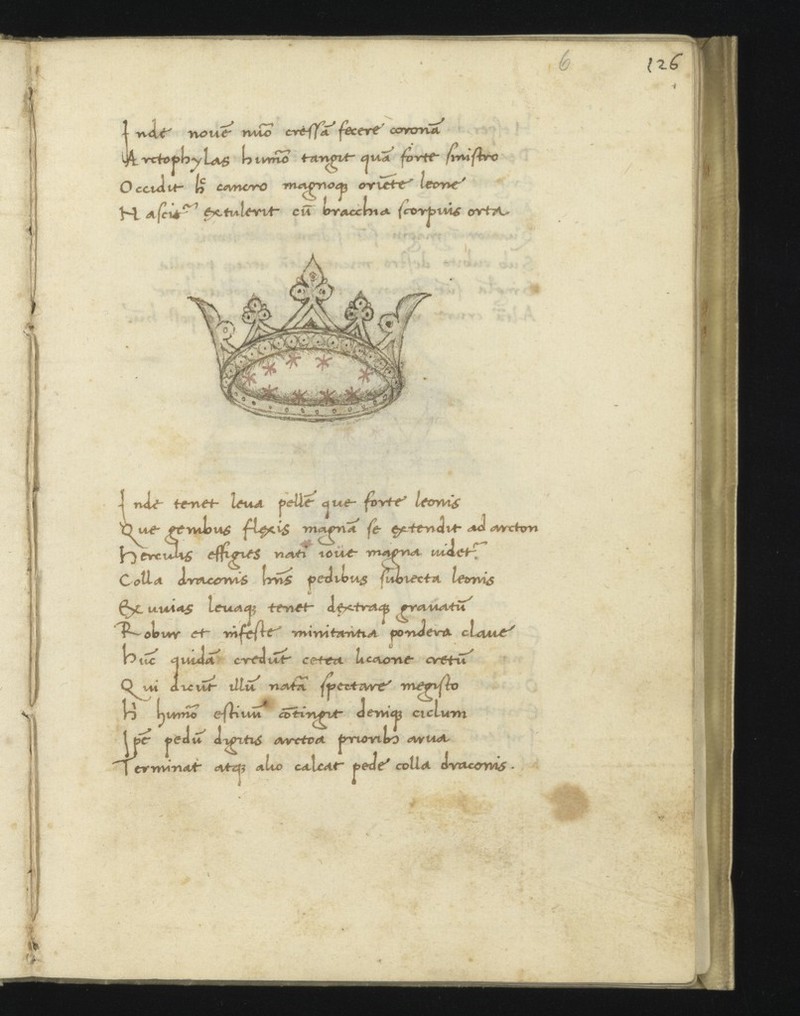 6 126
Inde nouē nūo cressā fecere coronā
Arctophylas humō tangit quā forte sinistro
Occidit hͨ cancro magnoqꝫ oriēte leone
Nascit extulerit cū bracchia scorpius orta
Inde tenet leua pellē que forte leonis
Que genibus flexis magnā se extendit ad arcton
Herculis effigies nati ioue magna uidet
Colla draconis hn̄s pedibus subiecta leonis
Exuuias leuaqꝫ tenet dextraqꝫ grauatū
Robur et infeste minitantia pondera claue
Hūc quidā credūt cetea licaone cretū
Qui dicūt illū natā spectare megisto
humō estiuū cōtingit deniqꝫ ciclum
Ip̄e pedū digitis arctoa priorib arua
Terminat atqꝫ alio calcat pede colla draconis.